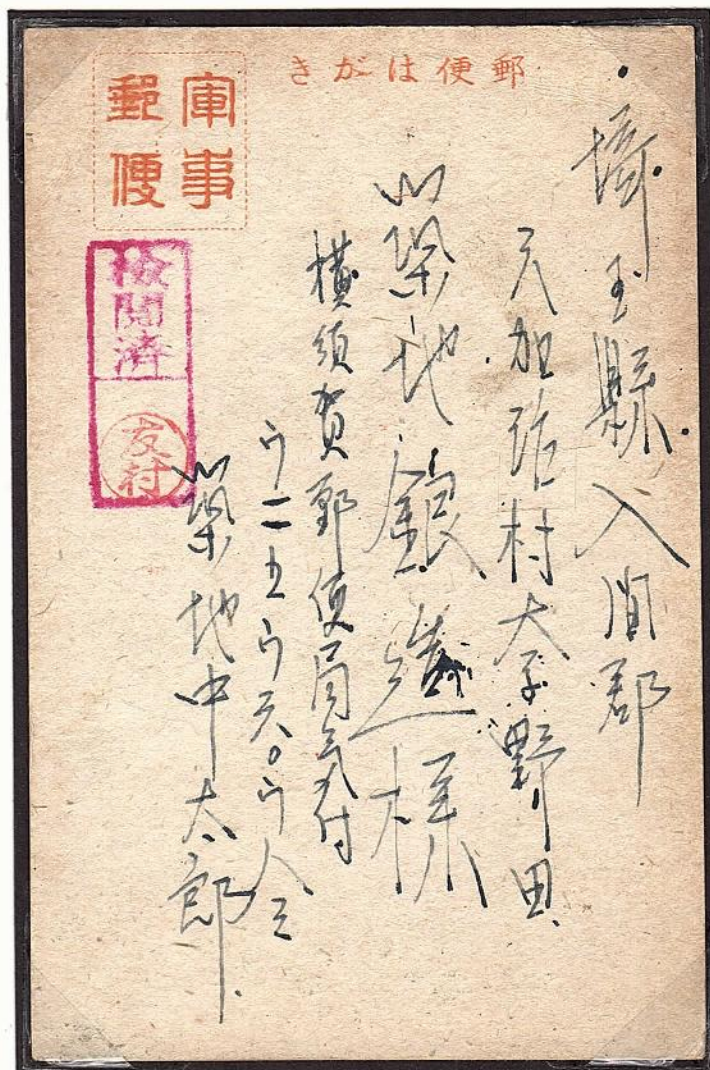 郵便はがき
軍事
郵便
検閲済
友村
埼玉縣入間郡
元加治村大字野田
築地銀造様
横須賀郵便局気付
ウ二五ウ六〇ウ八三
築地中太郎